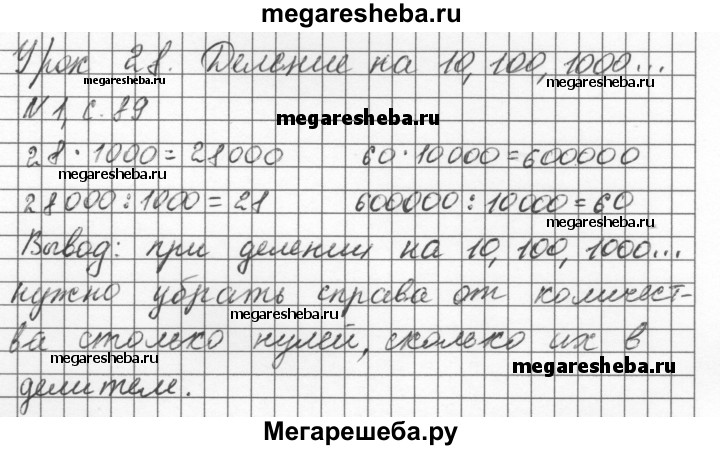 megaresheba.ru
Урок 28. Деление на 10, 100, 1000...
megaresheba.ru
megaresheba.ru
N 1, с. 89
megaresheba.ru
28 · 1000 = 28000 60 · 10000 = 600000
megaresheba.ru
28000 : 1000 = 28 600000 : 10000 = 60
megaresheba.ru
Вывод: при делении на 10, 100, 1000...
нужно убрать справа от количест-
megaresheba.ru
ва столько нулей, сколько их в
megaresheba.ru
megaresheba.ru
делителе.
Мегарешеба.ру